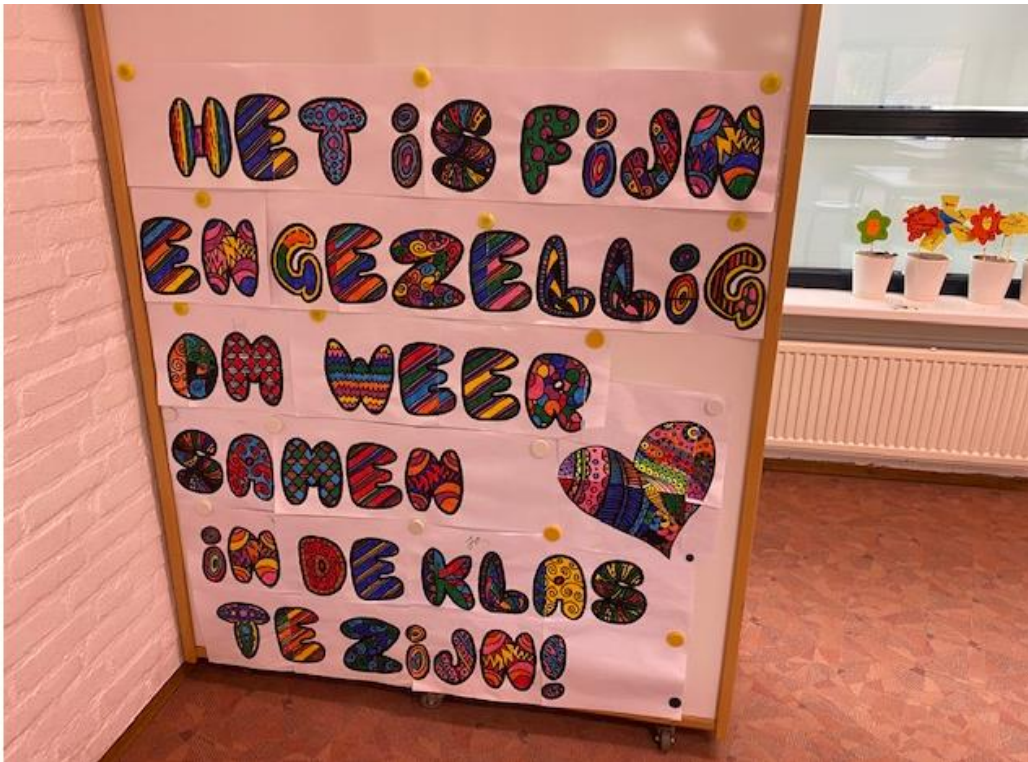 HET iS FiJN
EN GEZELLiG
OM WEER
SAMEN
iN DE KLAS
TE ZiJN!